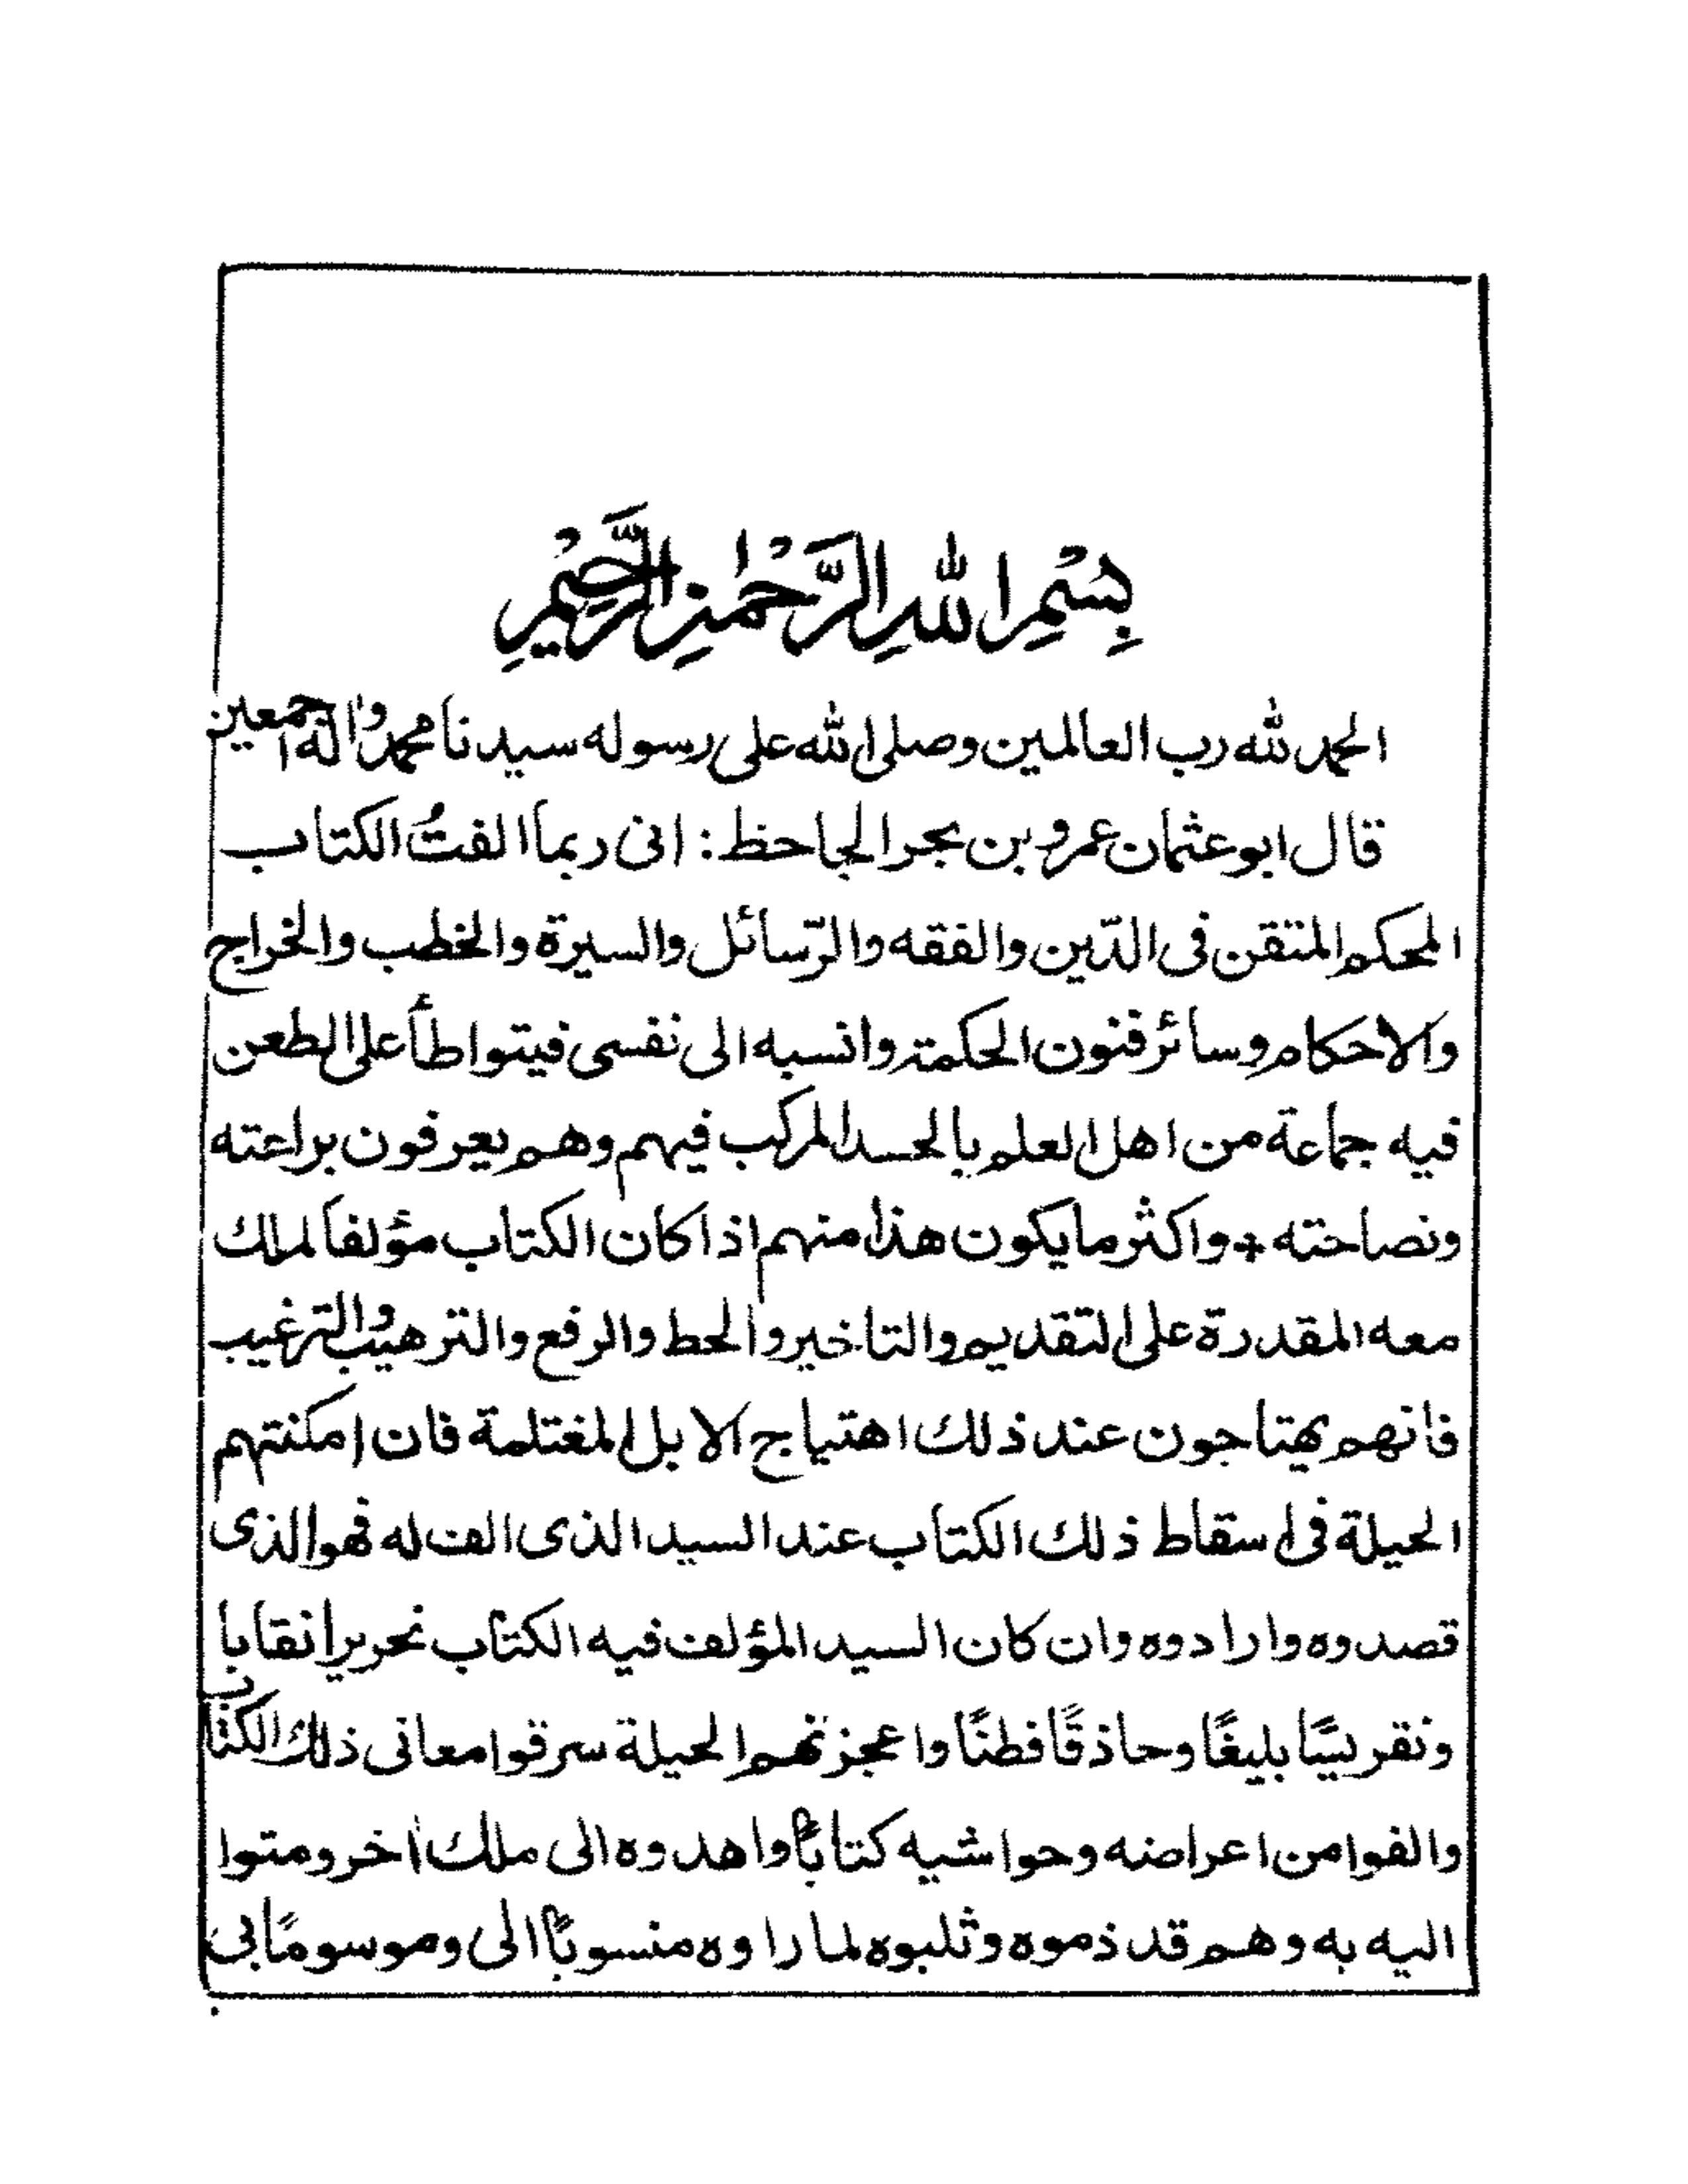 بِسْمِ اللّٰهِ الرَّحْمٰنِ الرَّحِيْمِ
الحمد لله رب العالمين وصلى الله على رسوله سيدنا محمد واله اجمعين
قال ابو عثمان عمرو بن بحر الجاحظ: انى ربما الفتُ الكتاب
المحكم المتقن فى الدّين والفقه والرّسائل والسيرة والخطب والخراج
والاحكام وسائر فنون الحكمة وانسبه الى نفسى فيتواطأ على الطعن
فيه جماعة من اهل العلم بالحسد المركب فيهم وهم يعرفون براعته
ونصاحته + واكثر ما يكون هذا منهم اذا كان الكتاب مؤلفا لملك
معه المقدرة على التقديم والتاخير والحط والرفع والترهيب والترغيب
فانهم يهتاجون عند ذلك اهتياج الابل المغتلمة فان امكنتهم
الحيلة فى اسقاط ذلك الكتاب عند السيد الذى الف له فهو الذى
قصدوه وارادوه وان كان السيد المؤلف فيه الكتاب نحريرا نقابا
ونقريسًا بليغًا وحاذقًا فطنًا واعجزتهم الحيلة سرقوا معانى ذلك الكتاب
والفوا من اعراضه وحواشيه كتابًا واهدوه الى ملك اخر ومتوا
اليه به وهم قد ذموه وثلبوه لما راوه منسوبًا الى وموسومًا بى